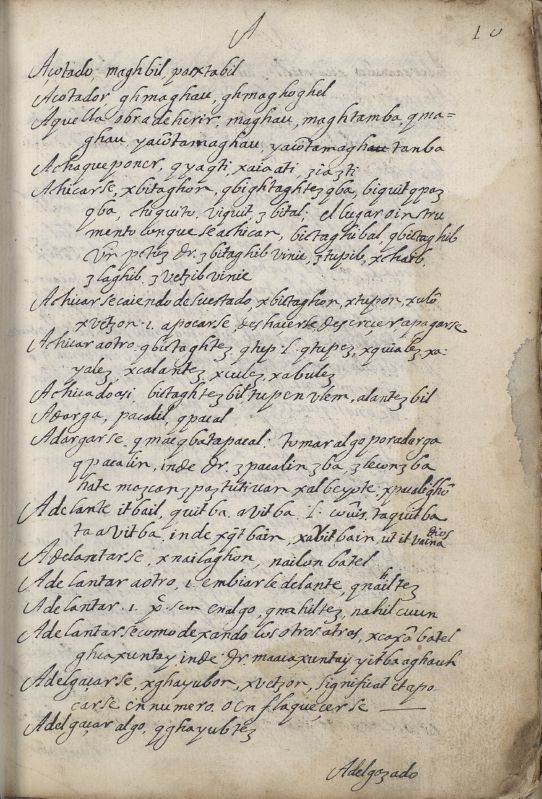 A
10
Açotado, maghbil, paxtabil
Açotador, ghmaghau, ghmaghoghel
Aquella obra de herir, maghau, maghtamba, qma=
ghau, yacotamaghau, yacotamaghau tanba
Achaque poner, qyaqti xaioati ziazti
Achicarse, xbitaghon, qbightaghtez qba, biquitqpaz
qba, chiquito, viquit, z bital; el lugar o instru
mento con que se achicar, bictaghibal, qbictaghib
dr. z bitaghib vinic, z tupib,
z laghib, z vetzib vinic
Achicarse caiendo de su estado, xbictaghon, xtupon, xculo
xvetzon. i. apocarse, deshacerse descrecer, apagarse
Achicar a otro, qbictaghtez, qtup. l. qtupez, xquialez xa-
yalez xcalantez, xculez, xabulez
Achicado asi, bictaghtezbil, tupen vlem, alantezbil
Adarga, pacalil, qpacal
Adargarse, qmaeqbatapacal. tomar algo por adarga
qpacalin, inde dr. z pacalin z ba, z lecon z ba
hate mazcan z paztutivan xalbeyote,
Adelante itbail, quitba, avitba, l. couis, taquitba
taavitba, inde xqit bain, xavitbain, ut it vaina dios
Adelantarse, xnailaghon, nailon batel
Adelantar a otro, i. embiarle delante, qnailtez
Adelantar. i. pº. sem en algo, qnahiltez, nahil cuun
Adelantarse como dexando los otros atras, batel
ghcaxuntay inde dr. macaxuntay yitbaaghauh
Adelgaçarse, xghayubon, xvetzon, significat et apo
carse en numero, o enflaqueçerse
Adelgaçar algo, qghayubtez
Adelgazado